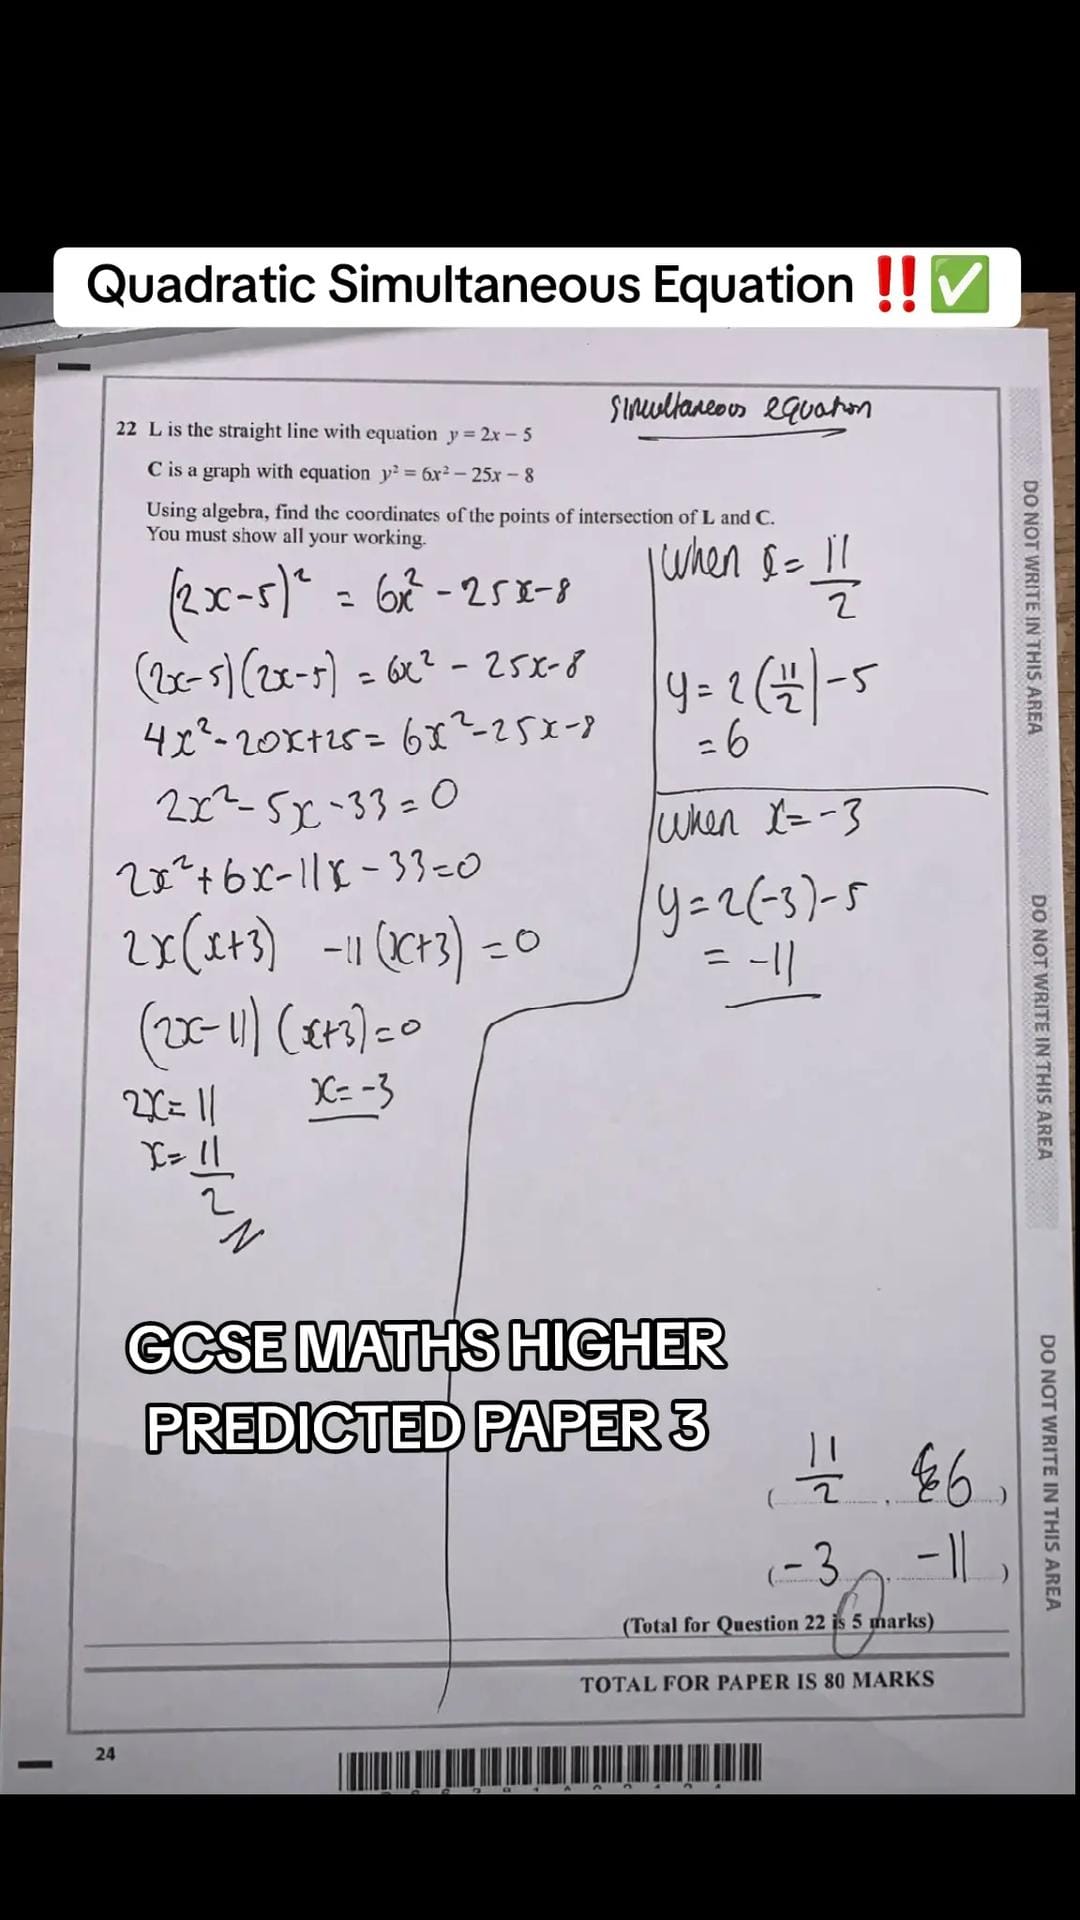 Quadratic Simultaneous Equation ‼️✅
simultaneous equation
22 L is the straight line with equation y = 2x – 5
C is a graph with equation y² = 6x² – 25x – 8
Using algebra, find the coordinates of the points of intersection of L and C.
You must show all your working.
(2x-5)² = 6x² - 25x-8
(2x-5)(2x-5) = 6x² - 25x-8
4x²-20x+25 = 6x²-25x-8
2x²-5x-33=0
2x²+6x-11x-33=0
2x(x+3) -11(x+3) =0
(2x-11)(x+3)=0
2x=11 x=-3
x=11/2
When x= 11/2
y=2(11/2)-5
=6
When x=-3
y=2(-3)-5
= -11
GCSE MATHS HIGHER
PREDICTED PAPER 3
( 11/2 , 6 )
( -3 , -11 )
(Total for Question 22 is 5 marks)
TOTAL FOR PAPER IS 80 MARKS
24
DO NOT WRITE IN THIS AREA
DO NOT WRITE IN THIS AREA
DO NOT WRITE IN THIS AREA